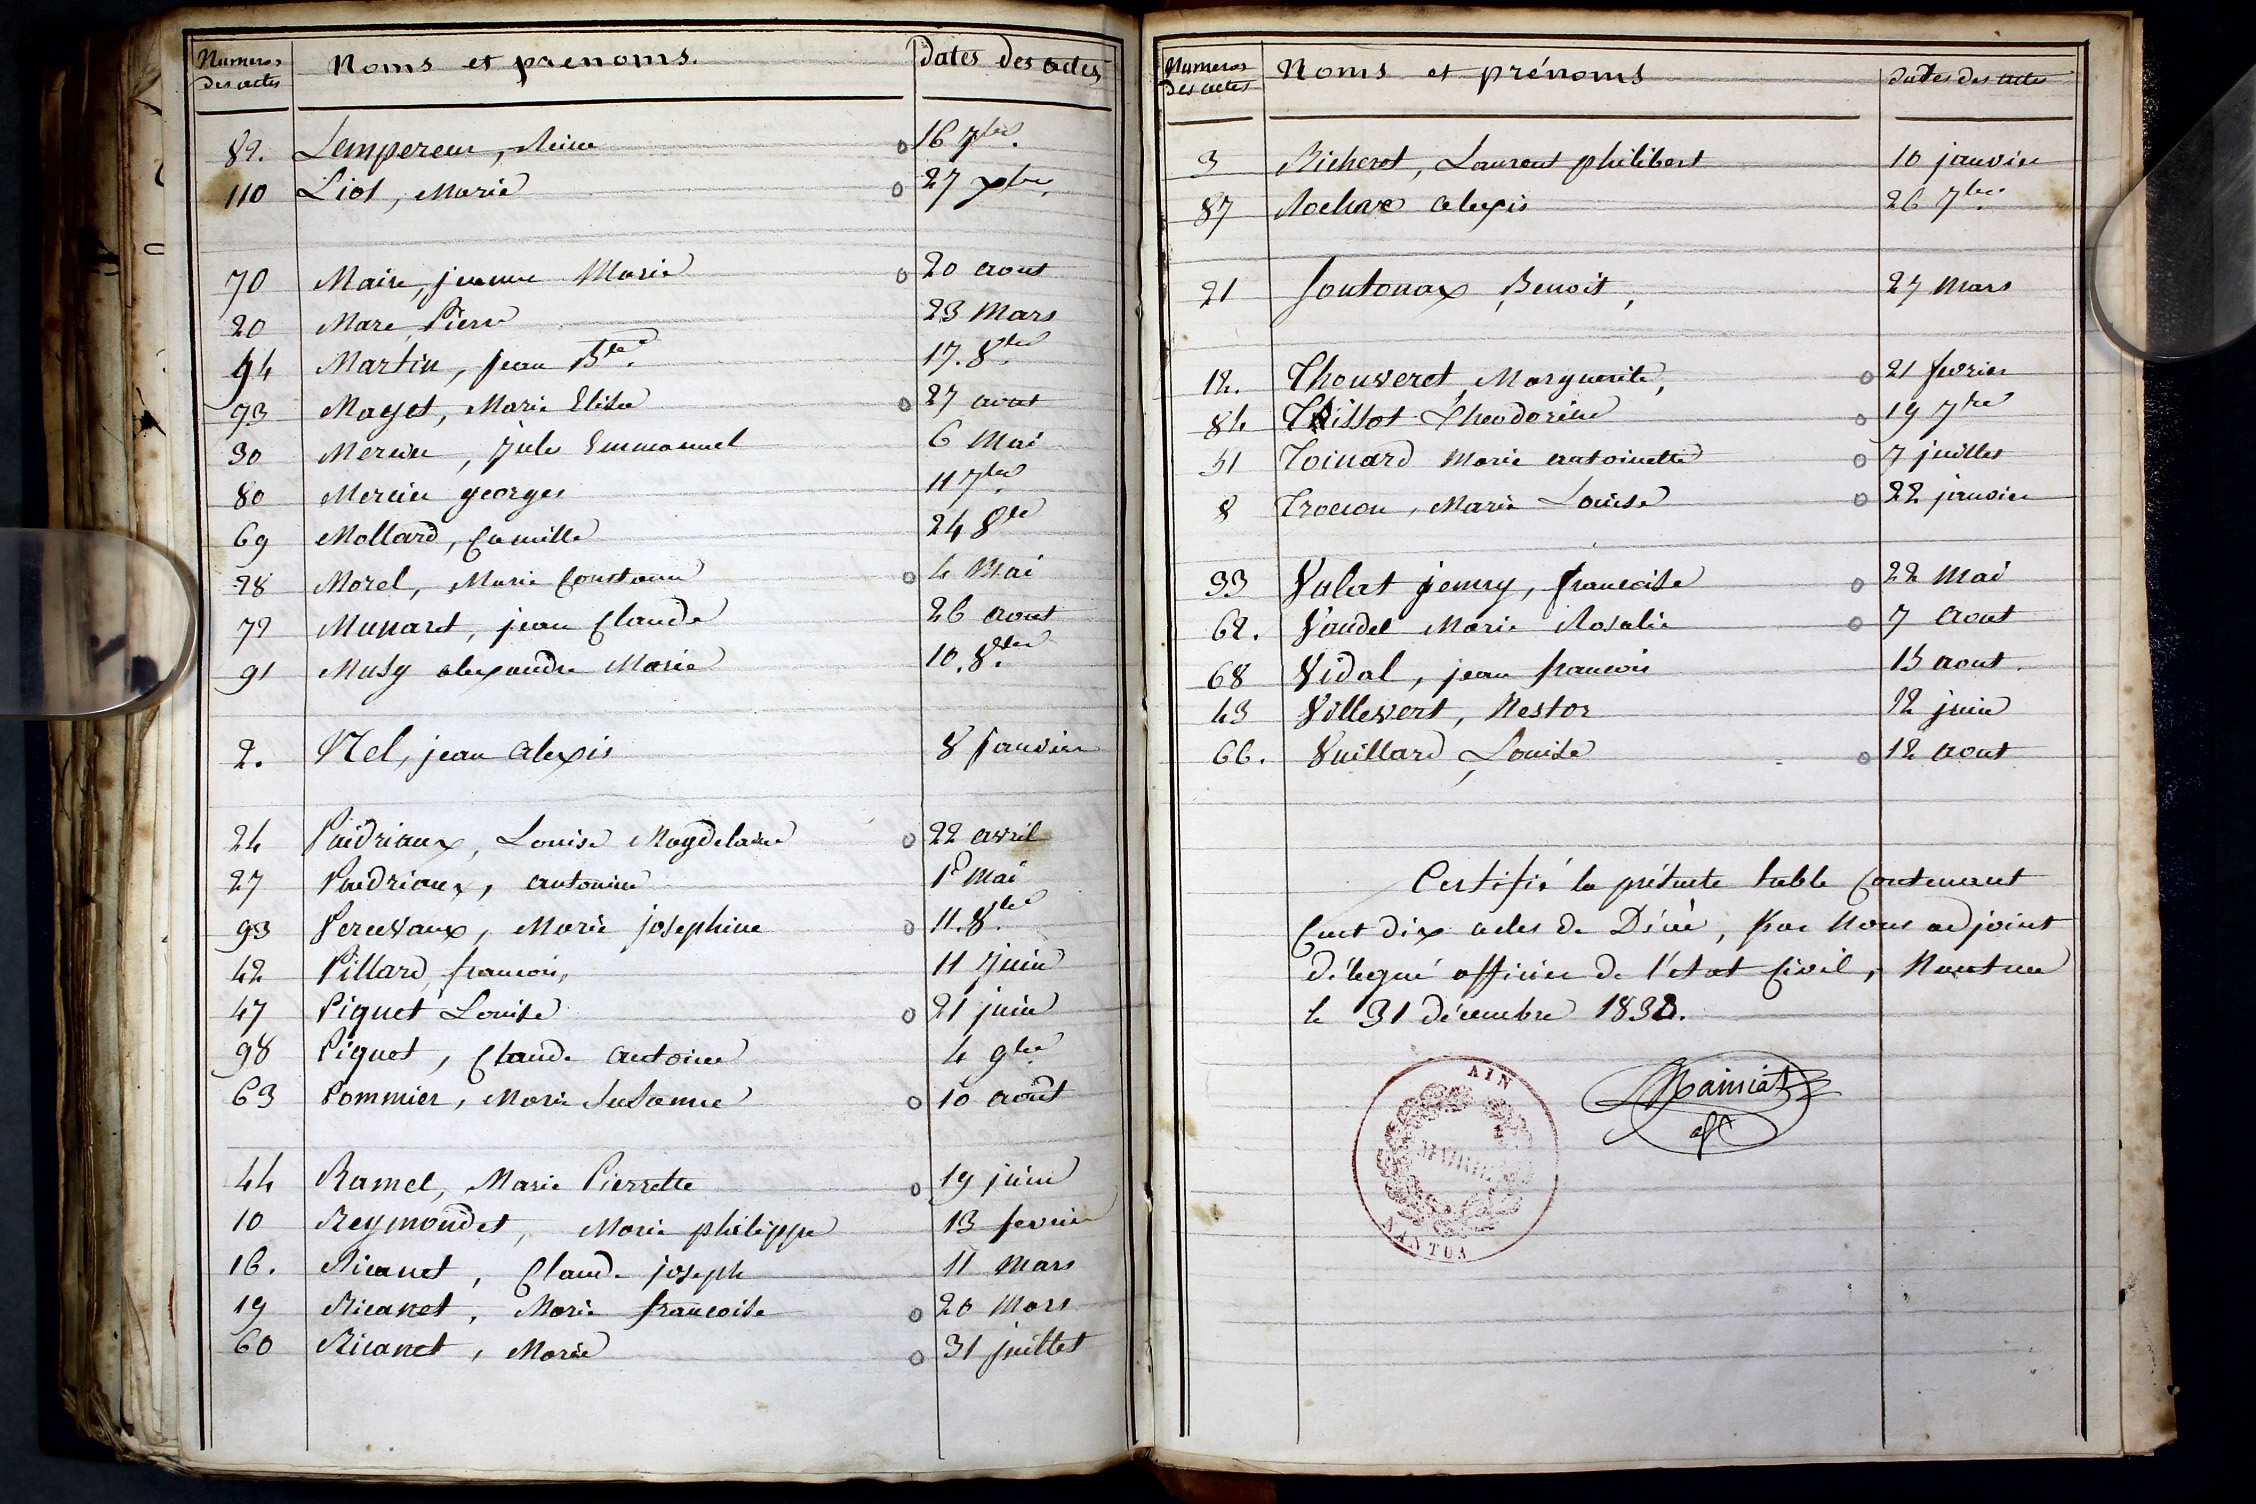 Numeros des actes | Noms et prenoms. | Dates des actes
82. Lempereur, Reine 16 7bre.
110 Liot, Marie 27 xbre.
70 Maire, jeanne Marie 20 aout
20 Mare, Pierre 23 Mars
94 Martin, jean Bte. 17. 8bre
73 Mayet, Marie Elisa 27 aout
30 Mercier, Jule Emmanuel 6 Mai
80 Mercier georges 11 7bre
69 Mollard, Camille 24 8bre
28 Morel, Marie Constance 4 Mai
72 Munaret, jean Claude 26 aout
91 Musy alexandre Marie 10. 8bre
2. Nel, jean alexis 8 janvier
24 Paidriaux, Louise Magdelaine 22 avril
27 Paidriaux, antonin 1er Mai
93 Percevaux, Marie josephine 11. 8bre
42 Pillard, francois, 11 juin
47 Piquet Louise 21 juin
98 Piquet, Claude antoine 4 9bre
63 Pommier, Marie Susanne 10 août
44 Ramel, Marie Pierrette 19 juin
10 Reymondet, Marie philippe 13 fevrier
16. Ricanet, Claude joseph 11 Mars
19 Ricanet, Marie francoise 20 Mars
60 Ricanet, Marie 31 juillet
Numeros des actes | Noms et prénoms | dates des actes
3 Richerot, Laurent philibert 10 janvier
87 Rochaix alexis 26 7bre
21 Sontonax Benoit, 27 Mars
12. Thouveret, Marguerite, 21 fevrier
84 Tissot Theodorine 19 7bre
51 Toinard Marie antoinette 7 juillet
8 Trocon, Marie Louise 22 janvier
33 Valat jemry, francoise 22 Mai
62. Vaudel Marie Rosalie 7 aout
68 Vidal, jean francois 15 aout
43 Villevert, Nestor 12 juin
66. Vuillard, Louise 12 aout
Certifié la présente table contenant
Cent dix actes de Décè, par Nous adjoint
délégué officier de l'état Civil, Nantua
le 31 décembre 1838.
AIN
MAIRIE
NANTUA